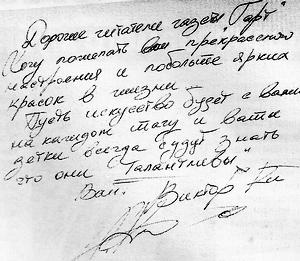 Дорогие читатели газеты "Гарт"
Хочу пожелать Вам прекрасного
настроения и побольше ярких
красок в жизни
Пусть искусство будет с вами
на каждом шагу и ваши
детки всегда будут знать
что они "Талантливы"
Ваш. Виктор